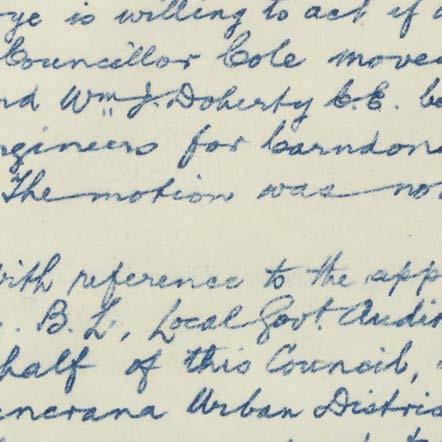 ye is willing to act if
Councillor Cole move
nd Wm J. Doherty C.E. b
ngineers for Carndon
The motion was no
With reference to the app
B. L, Local Govt. Audit
half of this Council,
ncrana Urban Distri